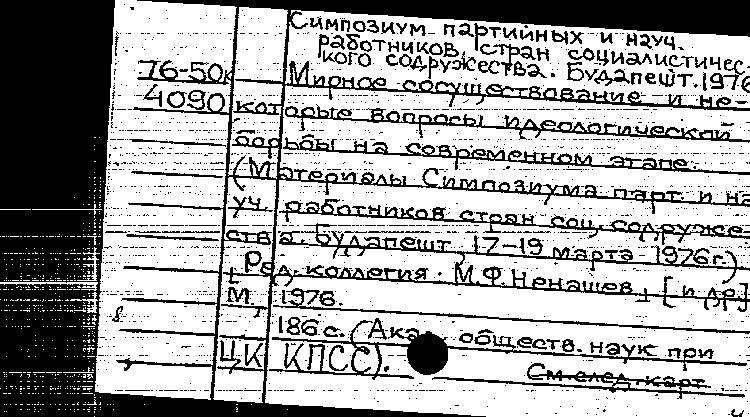 Симпозиум партийных и науч.
работников стран социалистичес-
кого содружества. Будапешт. 1976
76-50к Мирное сосуществование и не-
4090 которые вопросы идеологической
борьбы на современном этапе.
(Материалы Симпозиума парт. и на-
уч. работников стран соц. содруже-
ства. Будапешт, 17-19 марта 1976г.)
[Ред. коллегия: М.Ф. Ненашев и др.]
М., 1976.
186 с. (Акад. обществ. наук при
ЦК КПСС).
См след. карт.